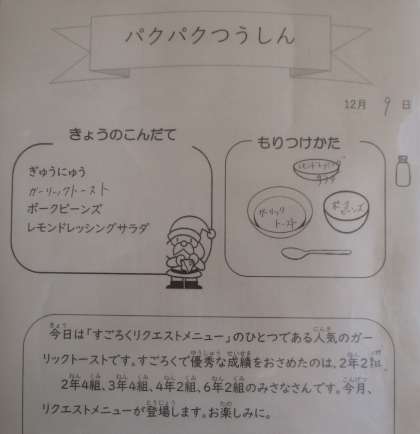 パクパクつうしん
12月 9 日
きょうのこんだて
ぎゅうにゅう
ガーリックトースト
ポークビーンズ
レモンドレッシングサラダ
もりつけかた
レモンドレッシング
サラダ
ガーリック
トースト
ビーンズ
今日は「すごろくリクエストメニュー」のひとつである人気のガー
リックトーストです。すごろくで優秀な成績をおさめたのは、2年2組、
2年4組、3年4組、4年2組、6年2組のみさなんです。今月、
リクエストメニューが登場します。お楽しみに。